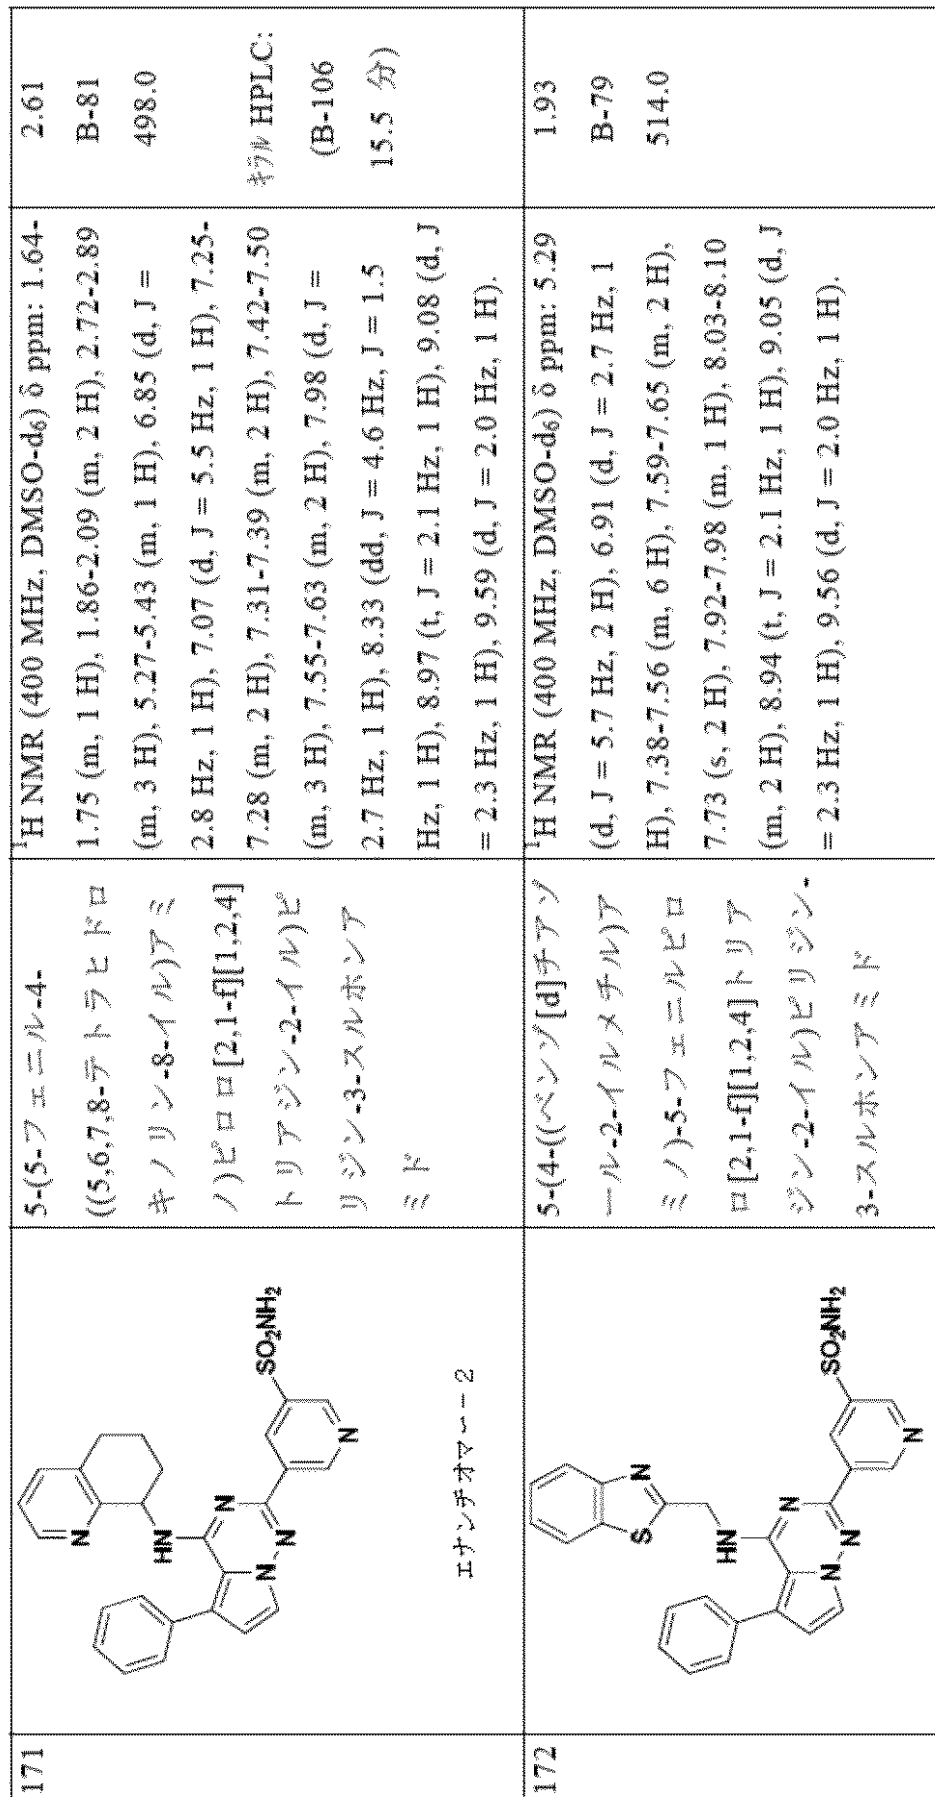 171
HN
N
N
N
N
N
SO₂NH₂
エナンチオマー－2
5-(5-フェニル-4-
((5,6,7,8-テトラヒドロ
キノリン-8-イル)アミ
ノ)ピロロ[2,1-f][1,2,4]
トリアジン-2-イル)ピ
リジン-3-スルホンア
ミド
¹H NMR (400 MHz, DMSO-d₆) δ ppm: 1.64-
1.75 (m, 1 H), 1.86-2.09 (m, 2 H), 2.72-2.89
(m, 3 H), 5.27-5.43 (m, 1 H), 6.85 (d, J =
2.8 Hz, 1 H), 7.07 (d, J = 5.5 Hz, 1 H), 7.25-
7.28 (m, 2 H), 7.31-7.39 (m, 2 H), 7.42-7.50
(m, 3 H), 7.55-7.63 (m, 2 H), 7.98 (d, J =
2.7 Hz, 1 H), 8.33 (dd, J = 4.6 Hz, J = 1.5
Hz, 1 H), 8.97 (t, J = 2.1 Hz, 1 H), 9.08 (d, J
= 2.3 Hz, 1 H), 9.59 (d, J = 2.0 Hz, 1 H).
2.61
B-81
498.0
キラル HPLC:
(B-106
15.5 分)
172
S
N
HN
N
N
N
N
SO₂NH₂
5-(4-((ベンゾ[d]チアゾ
ール-2-イルメチル)ア
ミノ)-5-フェニルピロ
ロ[2,1-f][1,2,4]トリア
ジン-2-イル)ピリジン-
3-スルホンアミド
¹H NMR (400 MHz, DMSO-d₆) δ ppm: 5.29
(d, J = 5.7 Hz, 2 H), 6.91 (d, J = 2.7 Hz, 1
H), 7.38-7.56 (m, 6 H), 7.59-7.65 (m, 2 H),
7.73 (s, 2 H), 7.92-7.98 (m, 1 H), 8.03-8.10
(m, 2 H), 8.94 (t, J = 2.1 Hz, 1 H), 9.05 (d, J
= 2.3 Hz, 1 H), 9.56 (d, J = 2.0 Hz, 1 H).
1.93
B-79
514.0